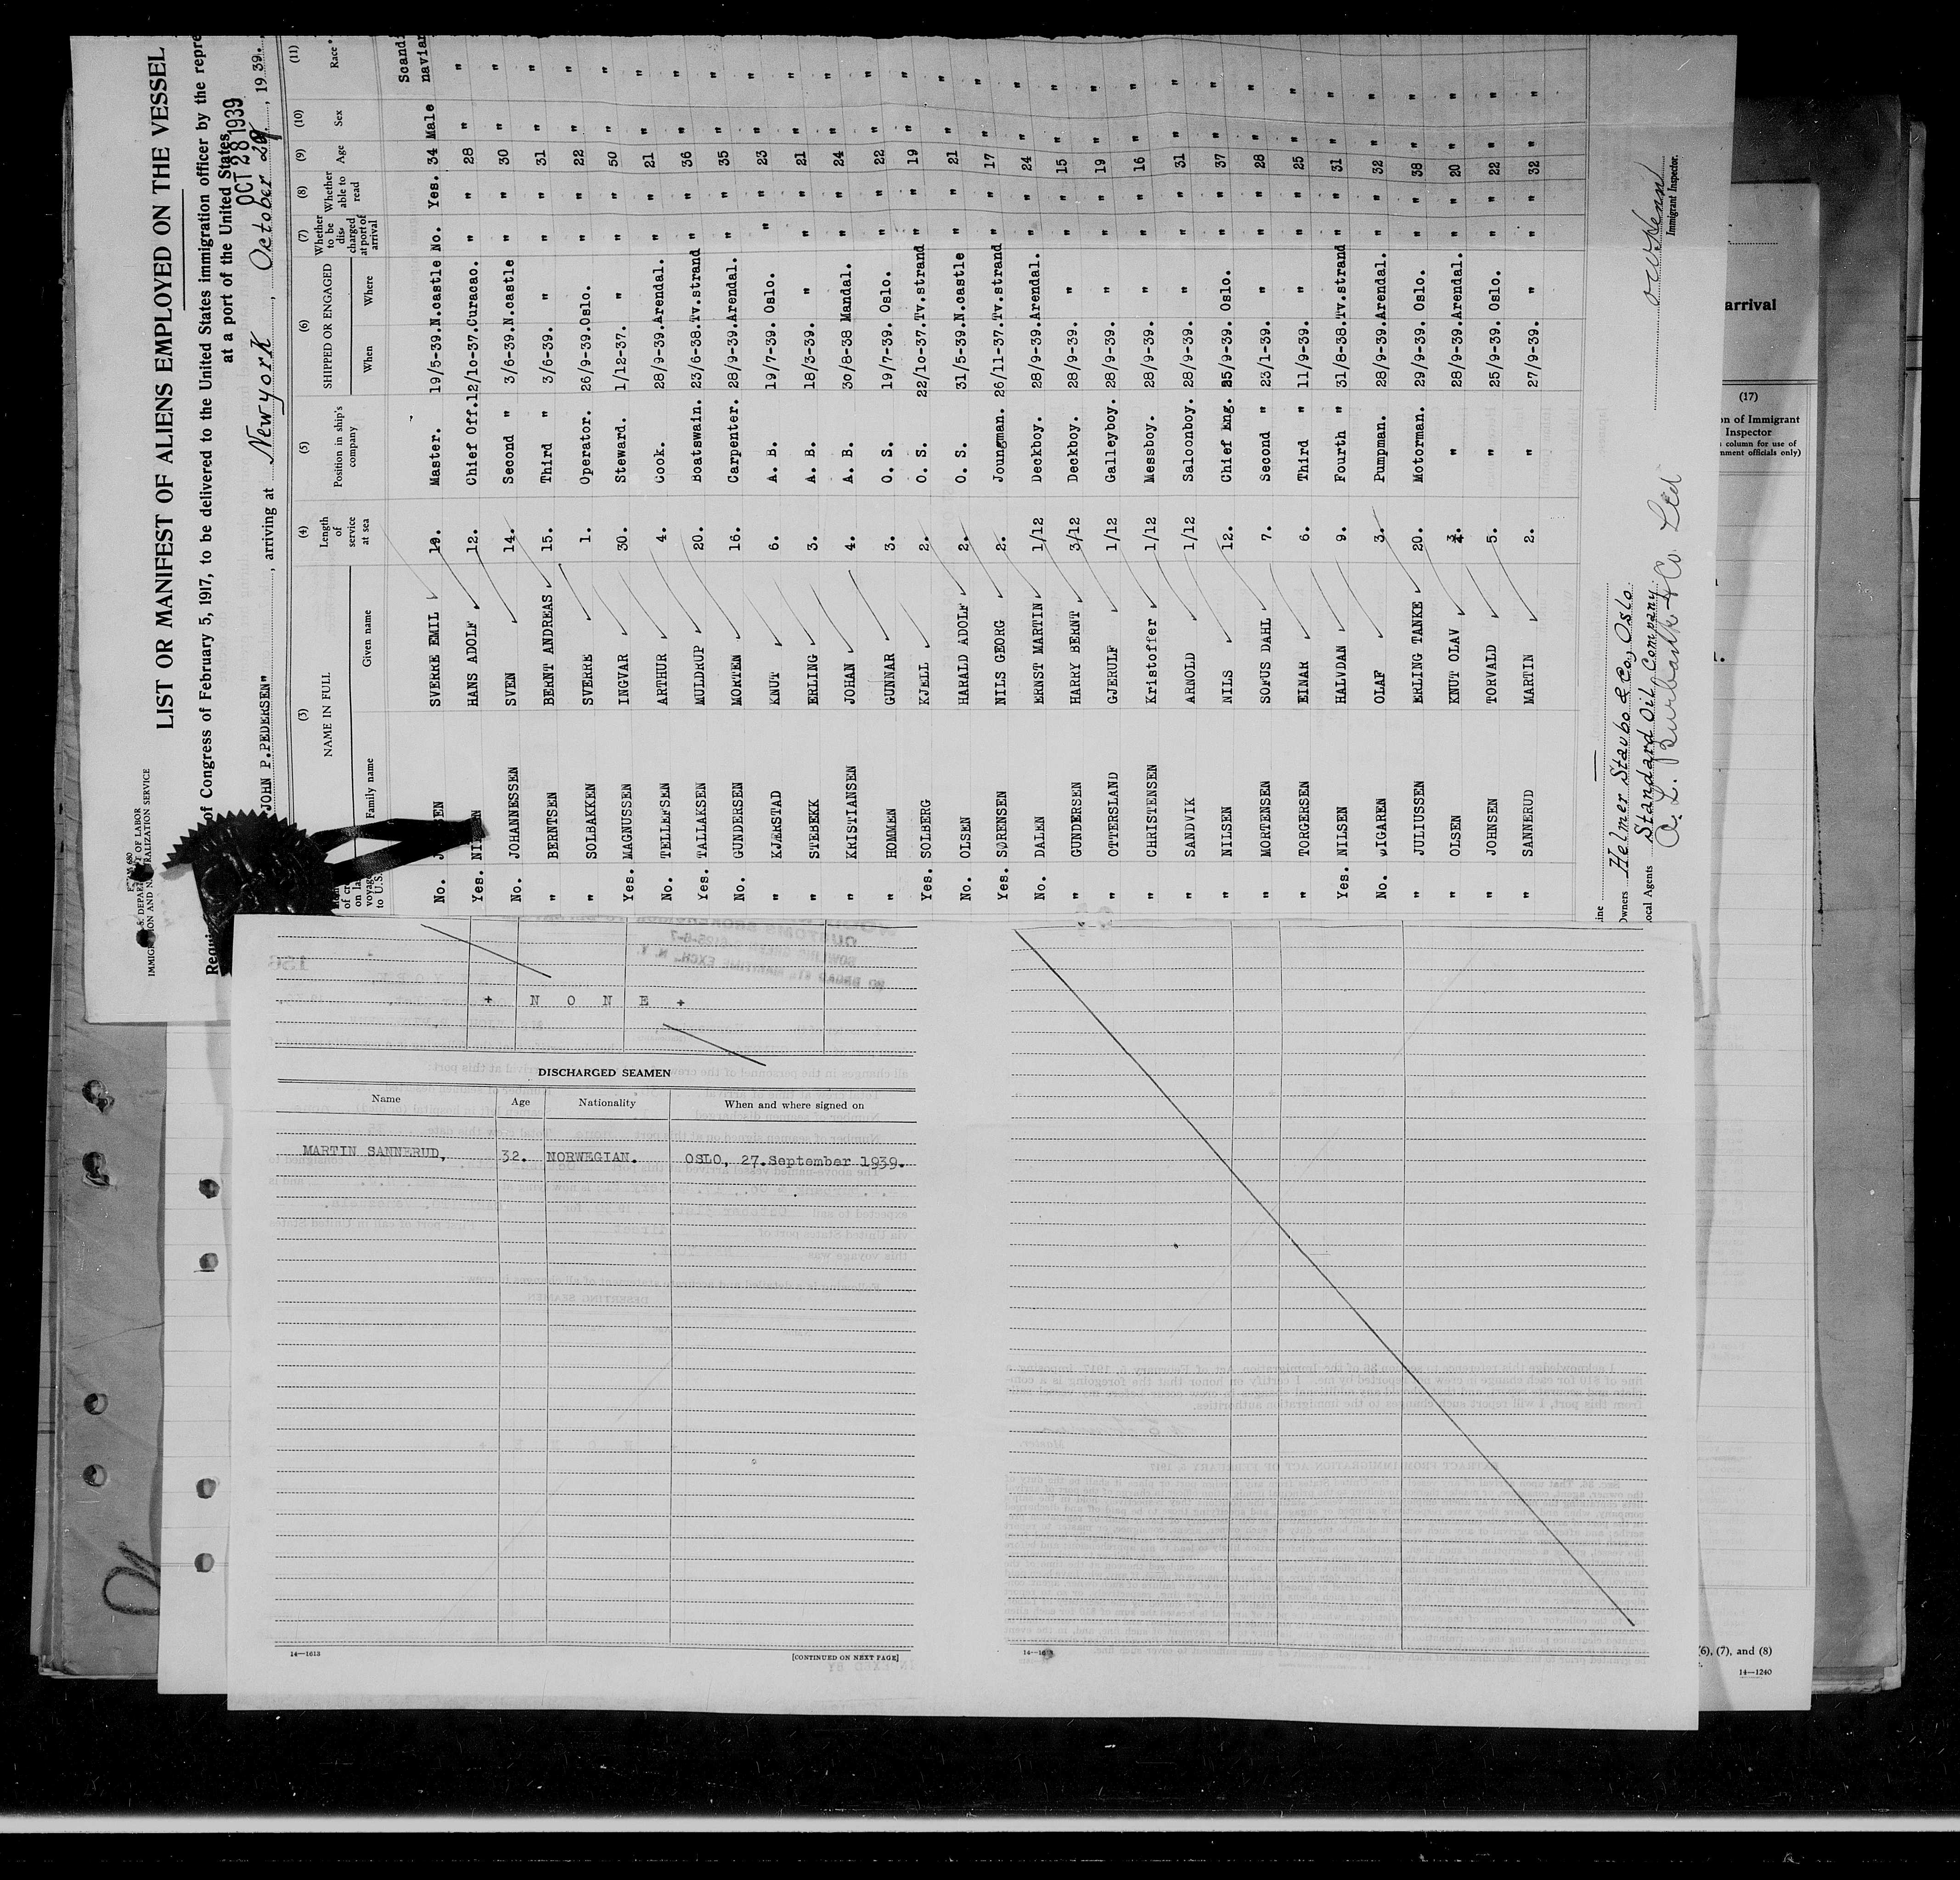 U. S. DEPARTMENT OF LABOR
IMMIGRATION AND NATURALIZATION SERVICE
LIST OR MANIFEST OF ALIENS EMPLOYED ON THE VESSEL
of Congress of February 5, 1917, to be delivered to the United States immigration officer by the repre
at a port of the United States
OCT 28 1939
JOHN P.PEDERSEN", arriving at New york, October 29, 1939.
(3) (4) (5) (6) (7) (8) (9) (10) (11)
NAME IN FULL Length of service at sea Position in ship's company SHIPPED OR ENGAGED Whether to be discharged at port of arrival Whether able to read Age Sex Race
Family name Given name When Where
No. SVERRE EMIL 19. Master. 19/5-39. N.castle No. Yes. 34 Male Scandi navian
Yes. HANS ADOLF 12. Chief Off. 12/10-37. Curacao. " " 28 " "
No. JOHANNESSEN SVEN 14. Second " 3/6-39. N.castle " " 30 " "
" BERNTSEN BERNT ANDREAS 15. Third " 3/6-39. " " " 31 " "
" SOLBAKKEN SVERRE 1. Operator. 26/9-39. Oslo. " " 22 " "
Yes. MAGNUSSEN INGVAR 30. Steward. 1/12-37. " " " 50 " "
No. TELLEFSEN ARTHUR 4. Cook. 28/9-39. Arendal. " " 21 " "
Yes. TALLAKSEN MULDRUP 20. Boatswain. 23/6-38. Tv.strand " " 36 " "
No. GUNDERSEN MORTEN 16. Carpenter. 28/9-39. Arendal. " " 35 " "
" KJERSTAD KNUT 6. A. B. 19/7-39. Oslo. " " 23 " "
" STEBEKK ERLING 3. A. B. 18/3-39. " " " 21 " "
" KRISTIANSEN JOHAN 4. A. B. 30/8-38 Mandal. " " 24 " "
" HOMMEN GUNNAR 3. O. S. 19/7-39. Oslo. " " 22 " "
Yes. SOLBERG KJELL 2. O. S. 22/10-37. Tv.strand " " 19 " "
No. OLSEN HARALD ADOLF 2. O. S. 31/5-39. N.castle " " 21 " "
Yes. SØRENSEN NILS GEORG 2. Joungman. 26/11-37. Tv.strand " " 17 " "
No. DALEN ERNST MARTIN 1/12 Deckboy. 28/9-39. Arendal. " " 24 " "
" GUNDERSEN HARRY BERNT 3/12 Deckboy. 28/9-39. " " " 15 " "
" OTTERSLAND GJERULF 1/12 Galleyboy. 28/9-39. " " " 19 " "
" CHRISTENSEN Kristoffer 1/12 Messboy. 28/9-39. " " " 16 " "
" SANDVIK ARNOLD 1/12 Saloonboy. 28/9-39. " " " 31 " "
" NILSEN NILS 12. Chief Eng. 25/9-39. Oslo. " " 37 " "
" MORTENSEN SOFUS DAHL 7. Second " 23/1-39. " " " 28 " "
" TORGERSEN EINAR 6. Third " 11/9-39. " " " 25 " "
Yes. NILSEN HALVDAN 9. Fourth " 31/8-38. Tv.strand " " 31 " "
No. WIGAREN OLAF 3. Pumpman. 28/9-39. Arendal. " " 32 " "
" JULIUSSEN ERLING TANKE 20. Motorman. 29/9-39. Oslo. " " 38 " "
" OLSEN KNUT OLAV " 28/9-39. Arendal. " " 20 " "
" JOHNSEN TORVALD 5. " 25/9-39. Oslo. " " 22 " "
" SANNERUD MARTIN 2. " 27/9-39. " " " 32 " "
Owners Helmer Staubo & Co., Oslo
Local Agents Standard Oil Company
A. L. Burbank & Co. Ltd
Immigrant Inspector.
arrival
(17)
on of Immigrant
Inspector
column for use of
nment officials only)
(6), (7), and (8)
14—1240
+ N O N E +
DISCHARGED SEAMEN
Name Age Nationality When and where signed on
MARTIN SANNERUD, 32. NORWEGIAN. OSLO, 27.September 1939.
14—1613
[CONTINUED ON NEXT PAGE]